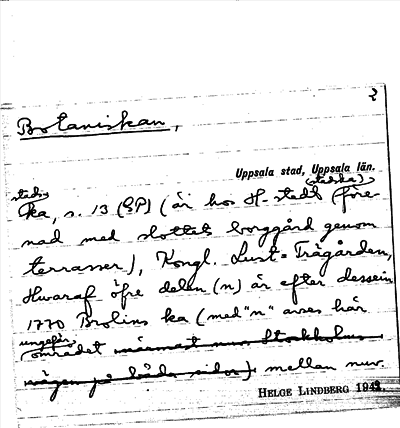 2
Botaniskan,
Uppsala stad, Uppsala län.
stads (stadska)
ka, s. 13 (GP) (är hos H-stedt före-
nad med slottets borggård genom
terrasser), Kongl. Lust-Trägården,
Hwaraf öfre delen (n) är efter dessein
1770 Brolins ka (med "n" avses här
ungefär
området närmast nuv Stockholms-
vägen på båda sidor) mellan nuv.
HELGE LINDBERG 1942.